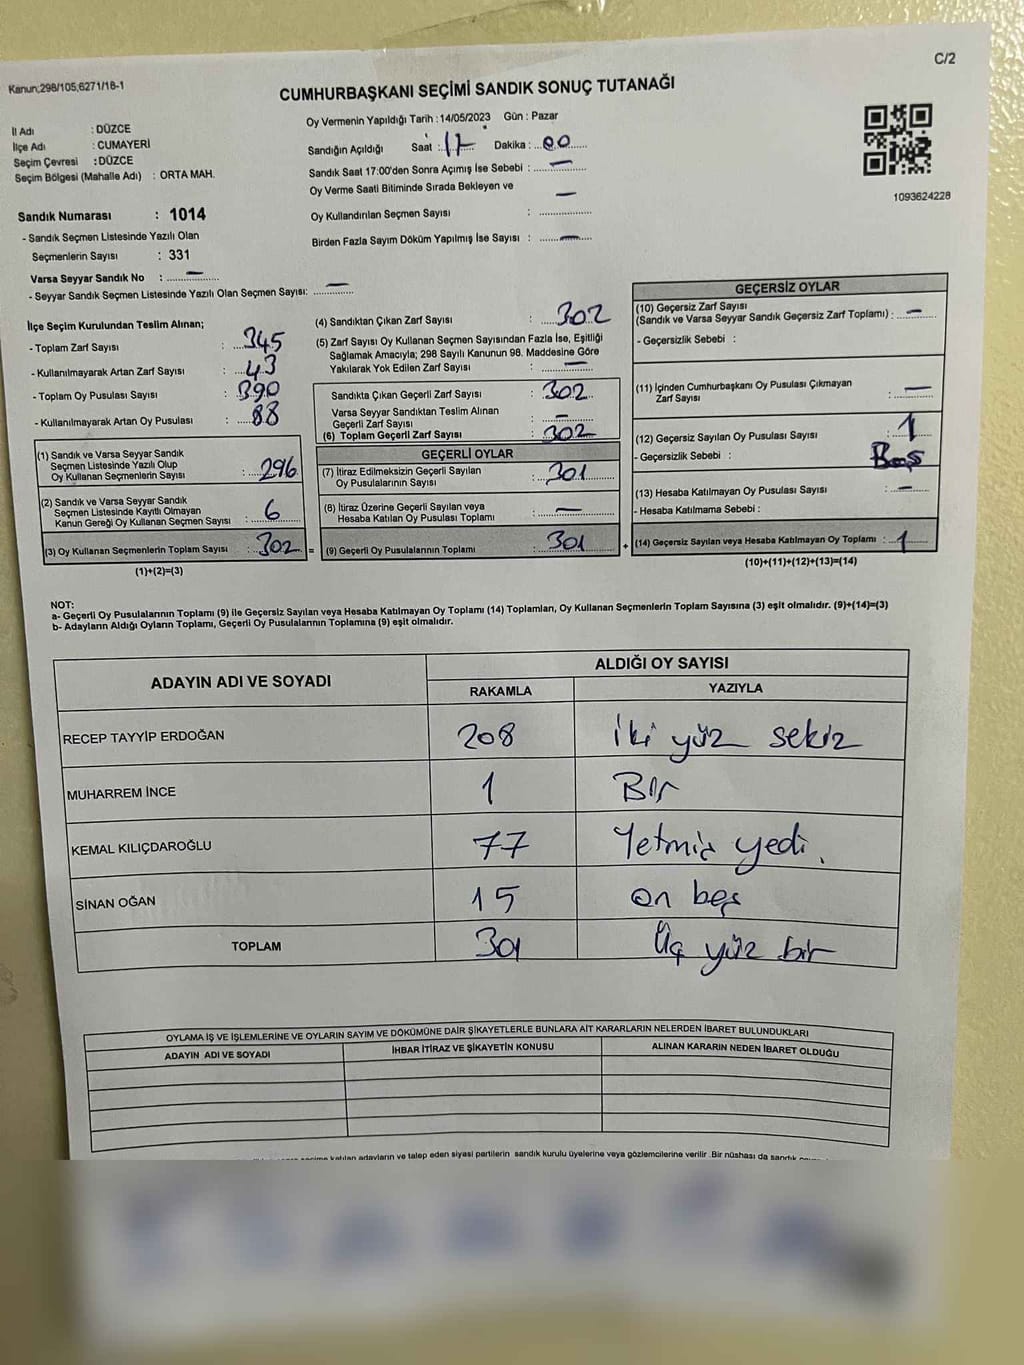 C/2
Kanun;298/105,6271/18-1
CUMHURBAŞKANI SEÇİMİ SANDIK SONUÇ TUTANAĞI
İl Adı : DÜZCE
İlçe Adı : CUMAYERİ
Seçim Çevresi : DÜZCE
Seçim Bölgesi (Mahalle Adı) : ORTA MAH.
Sandık Numarası : 1014
- Sandık Seçmen Listesinde Yazılı Olan
Seçmenlerin Sayısı : 331
Varsa Seyyar Sandık No : —
- Seyyar Sandık Seçmen Listesinde Yazılı Olan Seçmen Sayısı: —
Oy Vermenin Yapıldığı Tarih : 14/05/2023 Gün : Pazar
Sandığın Açıldığı Saat : 17 Dakika : 00
Sandık Saat 17:00'den Sonra Açımış İse Sebebi : —
Oy Verme Saati Bitiminde Sırada Bekleyen ve —
Oy Kullandırılan Seçmen Sayısı :
Birden Fazla Sayım Döküm Yapılmış İse Sayısı : —
1093624228
İlçe Seçim Kurulundan Teslim Alınan;
- Toplam Zarf Sayısı : 345
- Kullanılmayarak Artan Zarf Sayısı : 43
- Toplam Oy Pusulası Sayısı : 390
- Kullanılmayarak Artan Oy Pusulası : 88
(1) Sandık ve Varsa Seyyar Sandık
Seçmen Listesinde Yazılı Olup
Oy Kullanan Seçmenlerin Sayısı : 296
(2) Sandık ve Varsa Seyyar Sandık
Seçmen Listesinde Kayıtlı Olmayan
Kanun Gereği Oy Kullanan Seçmen Sayısı : 6
(3) Oy Kullanan Seçmenlerin Toplam Sayısı : 302 =
(1)+(2)=(3)
(4) Sandıktan Çıkan Zarf Sayısı : 302
(5) Zarf Sayısı Oy Kullanan Seçmen Sayısından Fazla İse, Eşitliği
Sağlamak Amacıyla; 298 Sayılı Kanunun 98. Maddesine Göre
Yakılarak Yok Edilen Zarf Sayısı : —
Sandıkta Çıkan Geçerli Zarf Sayısı : 302
Varsa Seyyar Sandıktan Teslim Alınan
Geçerli Zarf Sayısı : —
(6) Toplam Geçerli Zarf Sayısı : 302
GEÇERLİ OYLAR
(7) İtiraz Edilmeksizin Geçerli Sayılan
Oy Pusulalarının Sayısı : 301
(8) İtiraz Üzerine Geçerli Sayılan veya
Hesaba Katılan Oy Pusulası Toplamı : —
(9) Geçerli Oy Pusulalarının Toplamı : 301 +
GEÇERSİZ OYLAR
(10) Geçersiz Zarf Sayısı
(Sandık ve Varsa Seyyar Sandık Geçersiz Zarf Toplamı) : —
- Geçersizlik Sebebi :
(11) İçinden Cumhurbaşkanı Oy Pusulası Çıkmayan
Zarf Sayısı : —
(12) Geçersiz Sayılan Oy Pusulası Sayısı : 1
- Geçersizlik Sebebi : Boş
(13) Hesaba Katılmayan Oy Pusulası Sayısı : —
- Hesaba Katılmama Sebebi :
(14) Geçersiz Sayılan veya Hesaba Katılmayan Oy Toplamı : 1
(10)+(11)+(12)+(13)=(14)
NOT:
a- Geçerli Oy Pusulalarının Toplamı (9) ile Geçersiz Sayılan veya Hesaba Katılmayan Oy Toplamı (14) Toplamları, Oy Kullanan Seçmenlerin Toplam Sayısına (3) eşit olmalıdır. (9)+(14)=(3)
b- Adayların Aldığı Oyların Toplamı, Geçerli Oy Pusulalarının Toplamına (9) eşit olmalıdır.
ADAYIN ADI VE SOYADI
ALDIĞI OY SAYISI
RAKAMLA YAZIYLA
RECEP TAYYİP ERDOĞAN 208 İki yüz sekiz
MUHARREM İNCE 1 Bir
KEMAL KILIÇDAROĞLU 77 Yetmiş yedi.
SİNAN OĞAN 15 on beş
TOPLAM 301 Üç yüz bir
OYLAMA İŞ VE İŞLEMLERİNE VE OYLARIN SAYIM VE DÖKÜMÜNE DAİR ŞİKAYETLERLE BUNLARA AİT KARARLARIN NELERDEN İBARET BULUNDUKLARI
ADAYIN ADI VE SOYADI İHBAR İTİRAZ VE ŞİKAYETİN KONUSU ALINAN KARARIN NEDEN İBARET OLDUĞU
katılan adayların ve talep eden siyasi partilerin sandık kurulu üyelerine veya gözlemcilerine verilir .Bir nüshası da sandık